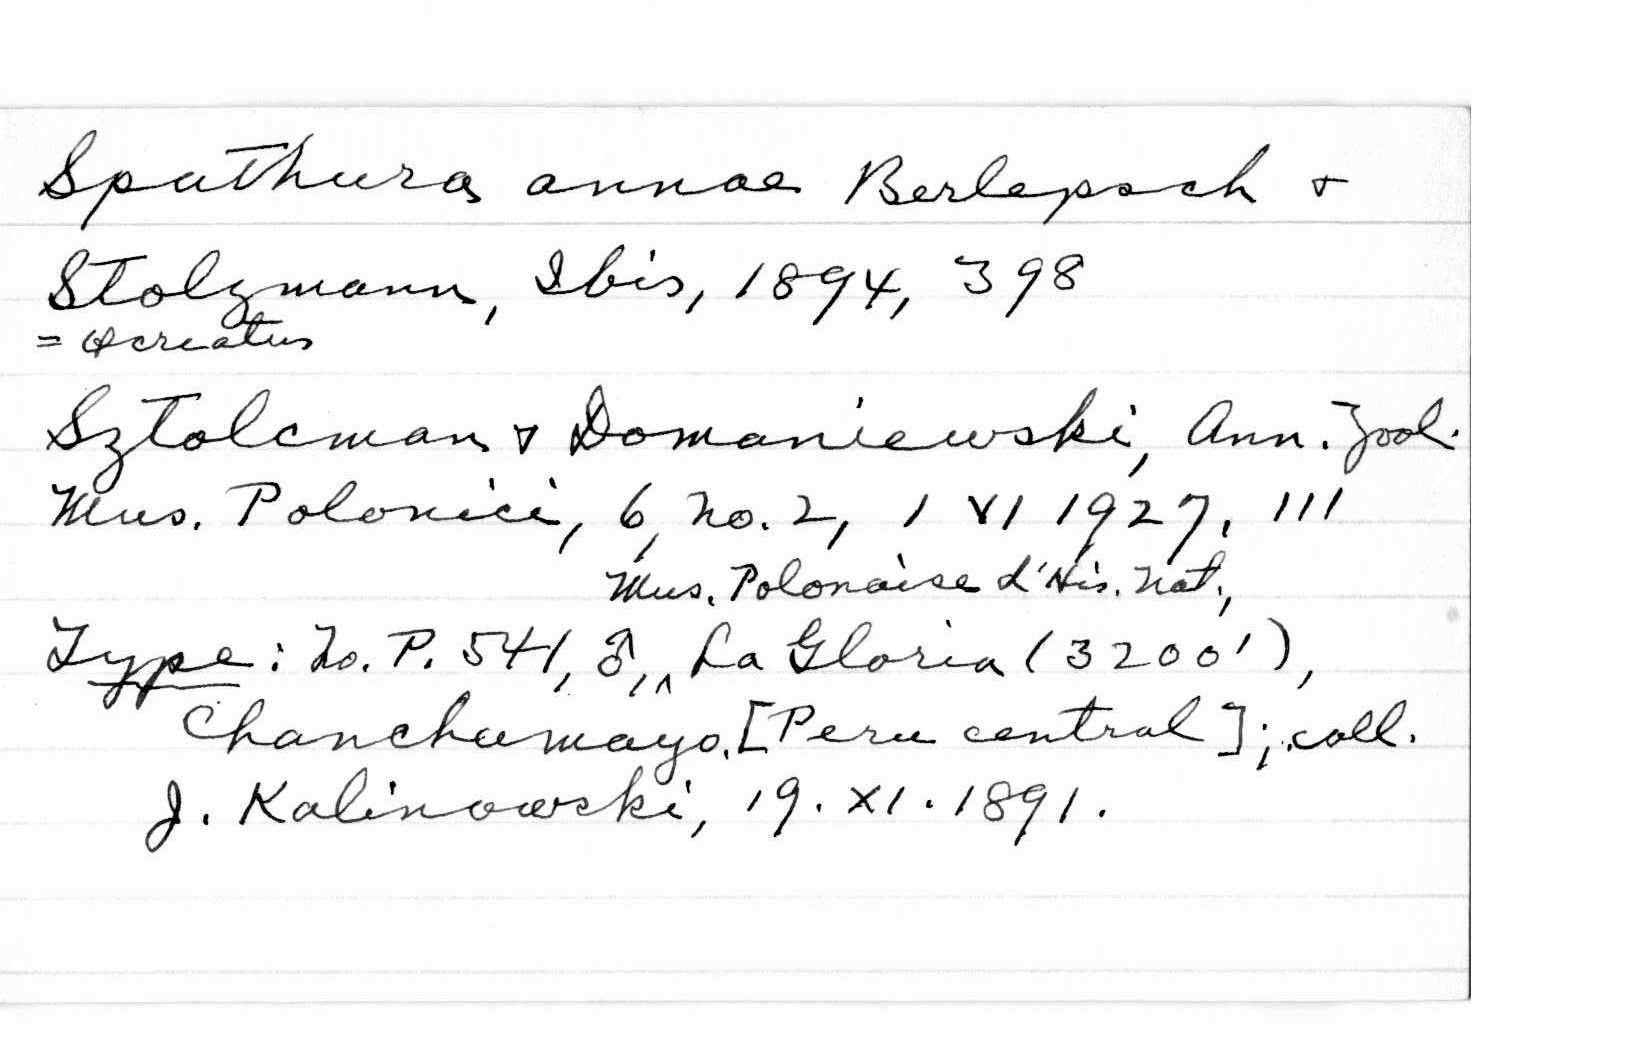 Spathura annae Berlepsch &
Stolzmann, Ibis, 1894, 398
= Ocreatus
Sztolcman & Domaniewski, Ann. Zool.
Mus. Polonici, 6, No. 2, 1 VI 1927, 111
Mus. Polonaise d'His. Nat.,
Type: No. P. 541, ♂, ^ La Gloria (3200'),
Chanchumayo, [Peru central]; coll.
J. Kalinowski, 19. XI. 1891.